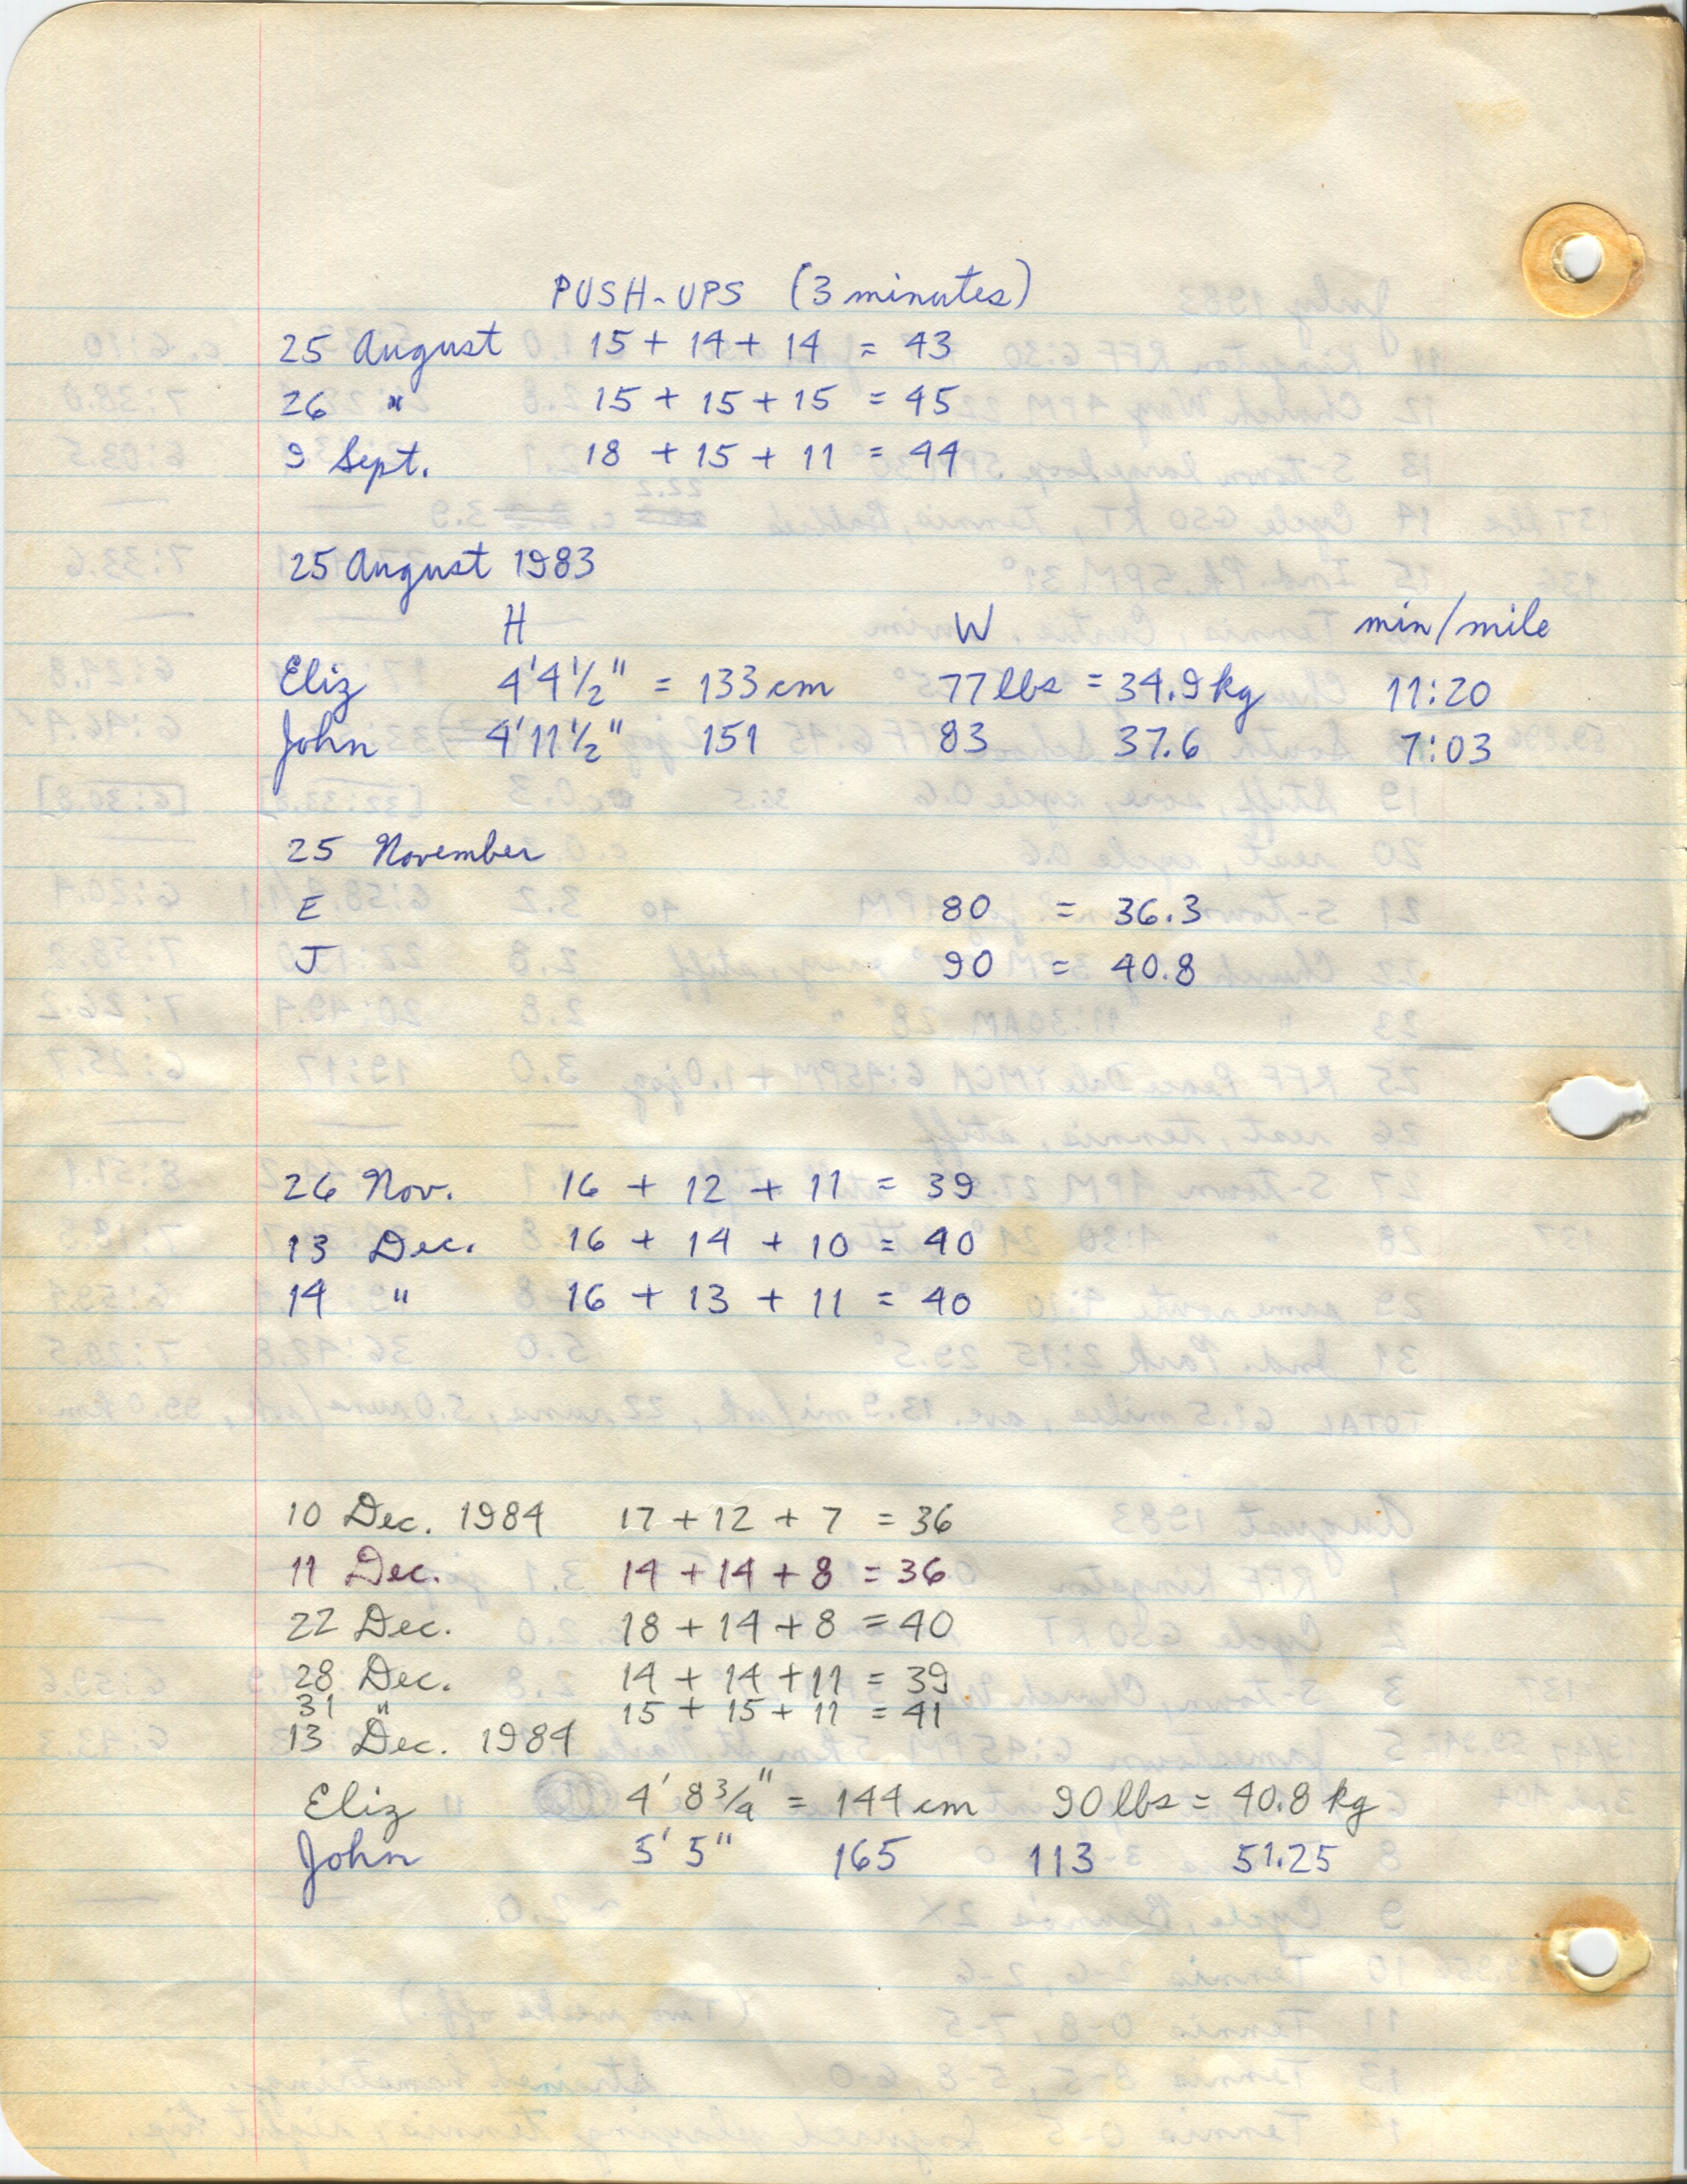 PUSH-UPS (3 minutes)
25 August 15 + 14 + 14 = 43
26 " 15 + 15 + 15 = 45
9 Sept. 18 + 15 + 11 = 44
25 August 1983
H W min/mile
Eliz 4'4½" = 133 cm 77 lbs = 34.9 kg 11:20
John 4'11½" 151 83 37.6 7:03
25 November
E 80 = 36.3
J 90 = 40.8
26 Nov. 16 + 12 + 11 = 39
13 Dec. 16 + 14 + 10 = 40
14 " 16 + 13 + 11 = 40
10 Dec. 1984 17 + 12 + 7 = 36
11 Dec. 14 + 14 + 8 = 36
22 Dec. 18 + 14 + 8 = 40
28 Dec. 14 + 14 + 11 = 39
31 " 15 + 15 + 11 = 41
13 Dec. 1984
Eliz 4' 8¾" = 144 cm 90 lbs = 40.8 kg
John 5' 5" 165 113 51.25